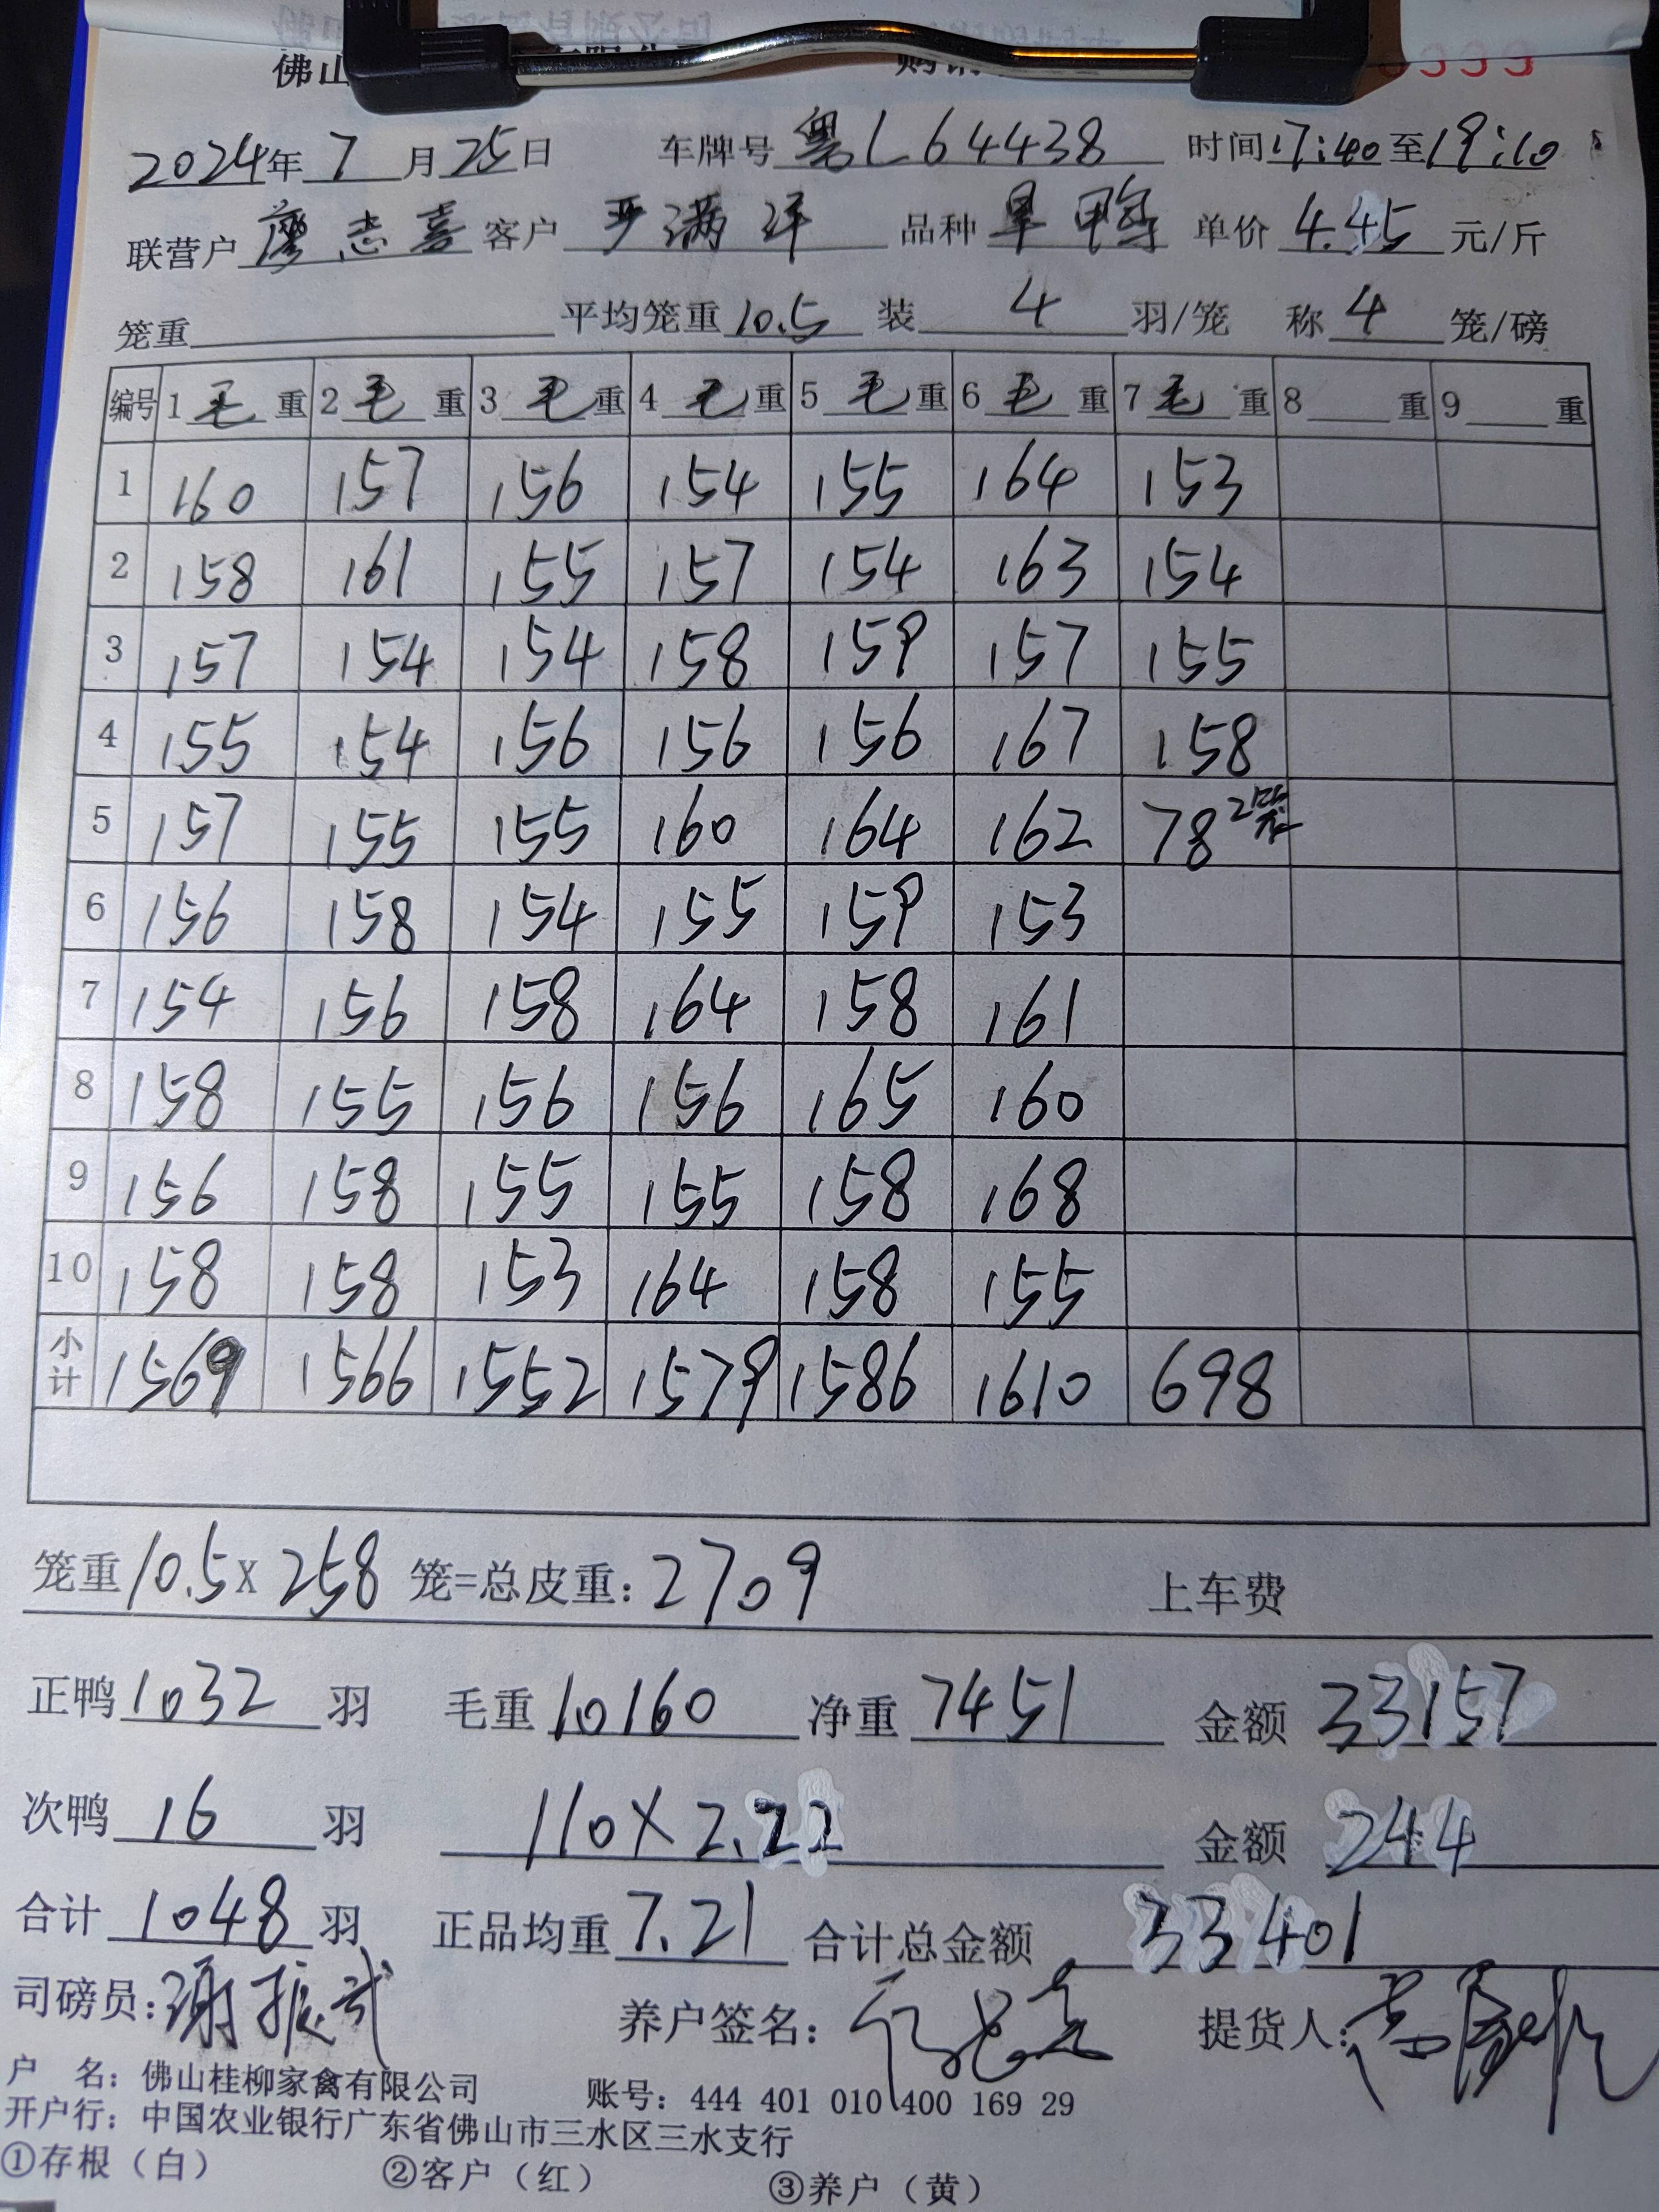 佛山
购销
9999
2024年 7 月 25 日 车牌号 粤L64438 时间 17:40 至 19:10
联营户 廖志喜 客户 严满洋 品种 旱鸭 单价 4.45 元/斤
笼重 平均笼重 10.5 装 4 羽/笼 称 4 笼/磅
编号 1 毛 重 2 毛 重 3 毛 重 4 毛 重 5 毛 重 6 毛 重 7 毛 重 8 重 9 重
1 160 157 156 154 155 164 153
2 158 161 155 157 154 163 154
3 157 154 154 158 159 157 155
4 155 154 156 156 156 167 158
5 157 155 155 160 164 162 78 2笼
6 156 158 154 155 159 153
7 154 156 158 164 158 161
8 158 155 156 156 165 160
9 156 158 155 155 158 168
10 158 158 153 164 158 155
小计 1569 1566 1552 1579 1586 1610 698
笼重 10.5 x 258 笼=总皮重: 2709 上车费
正鸭 1032 羽 毛重 10160 净重 7451 金额 33157
次鸭 16 羽 110 X 2.22 金额 244
合计 1048 羽 正品均重 7.21 合计总金额 33401
司磅员: 谢振武 养户签名: 提货人:
户 名: 佛山桂柳家禽有限公司 账号: 444 401 010 400 169 29
开户行: 中国农业银行广东省佛山市三水区三水支行
①存根（白） ②客户（红） ③养户（黄）